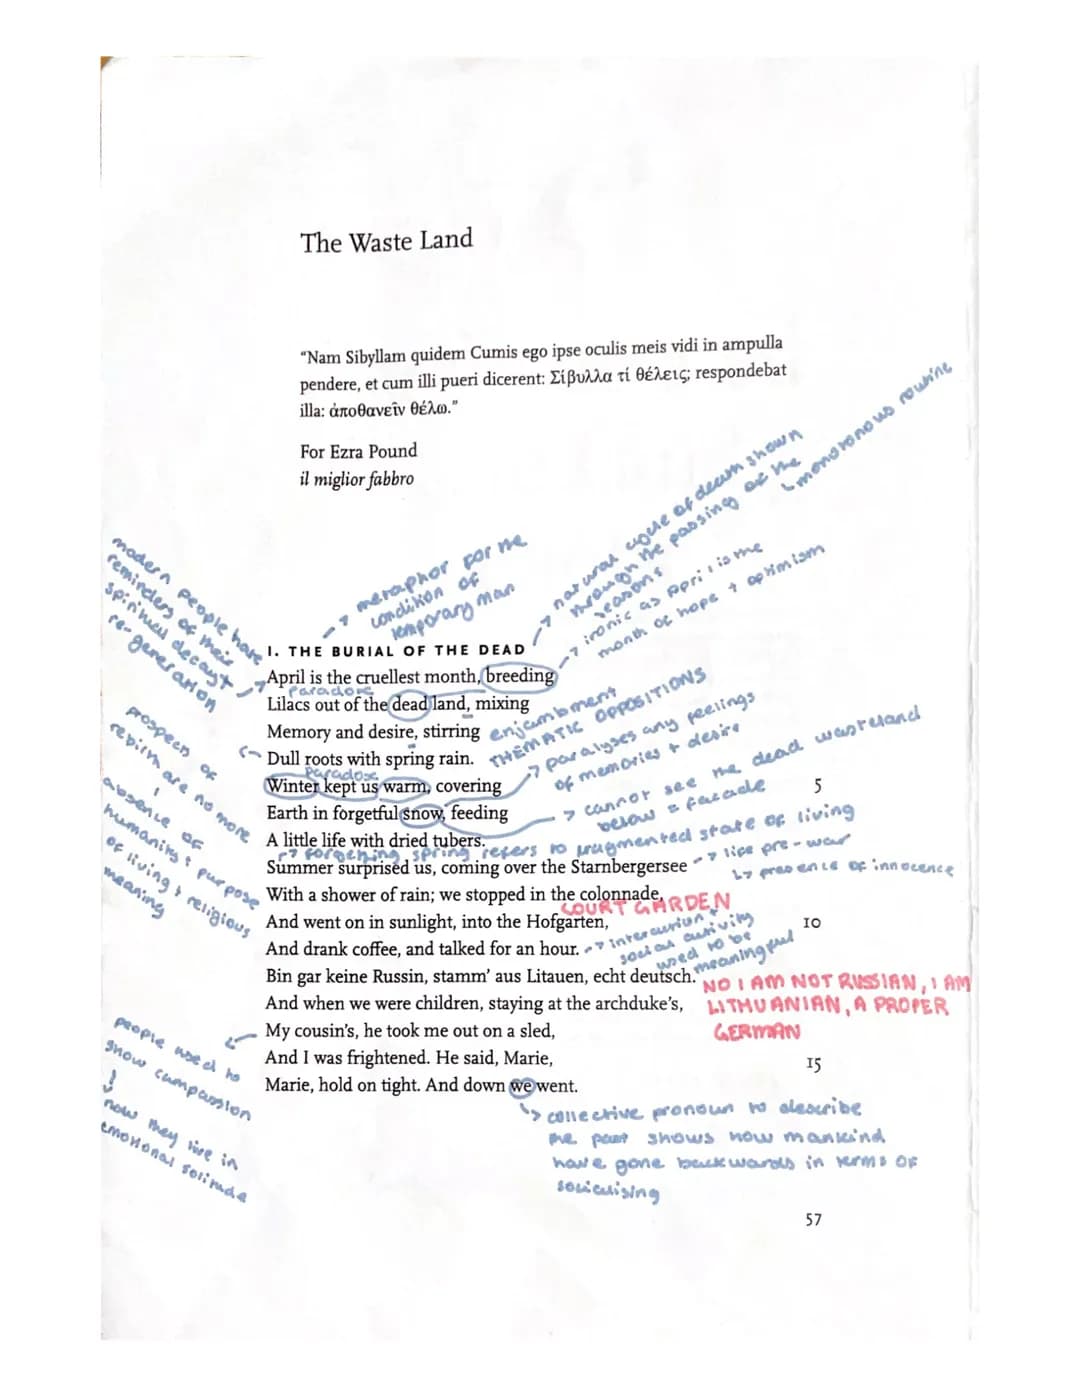 The Waste Land
“Nam Sibyllam quidem Cumis ego ipse oculis meis vidi in ampulla
pendere, et cum illi pueri dicerent: Σίβυλλα τί θέλεις; respondebat
illa: ἀποθανεῖν θέλω.”
For Ezra Pound
il miglior fabbro
natural cycle of death shown
through the passing of the
seasons
↳ monotonous routine
→ ironic as april is the
month of hope + optimism
→ metaphor for the
condition of
temporary man
modern people have
reminders of their
spiritual decay +
re-generation
I. THE BURIAL OF THE DEAD
April is the cruellest month, breeding
paradox
Lilacs out of the dead land, mixing
Memory and desire, stirring
enjambment
THEMATIC OPPOSITIONS
Dull roots with spring rain.
→ paralyses any feelings
of memories + desire
prospects of
rebirth are no more
↓
absence of
humanity + purpose
of living + religious
meaning
paradox
Winter kept us warm, covering
5
Earth in forgetful snow, feeding
→ cannot see the dead wasteland
below = facade
A little life with dried tubers.
→ forgetting spring refers to fragmented state of living
Summer surprised us, coming over the Starnbergersee
→ life pre-war
↳ presence of innocence
With a shower of rain; we stopped in the colonnade,
COURT GARDEN
And went on in sunlight, into the Hofgarten,
10
And drank coffee, and talked for an hour.
social activity
used to be
meaningful
Bin gar keine Russin, stamm’ aus Litauen, echt deutsch.
NO I AM NOT RUSSIAN, I AM
LITHUANIAN, A PROPER
GERMAN
And when we were children, staying at the archduke’s,
My cousin’s, he took me out on a sled,
And I was frightened. He said, Marie,
15
Marie, hold on tight. And down we went.
people used to
show compassion
↓
now they live in
emotional solitude
↳ collective pronoun to describe
the past shows how mankind
have gone backwards in terms of
socialising
57